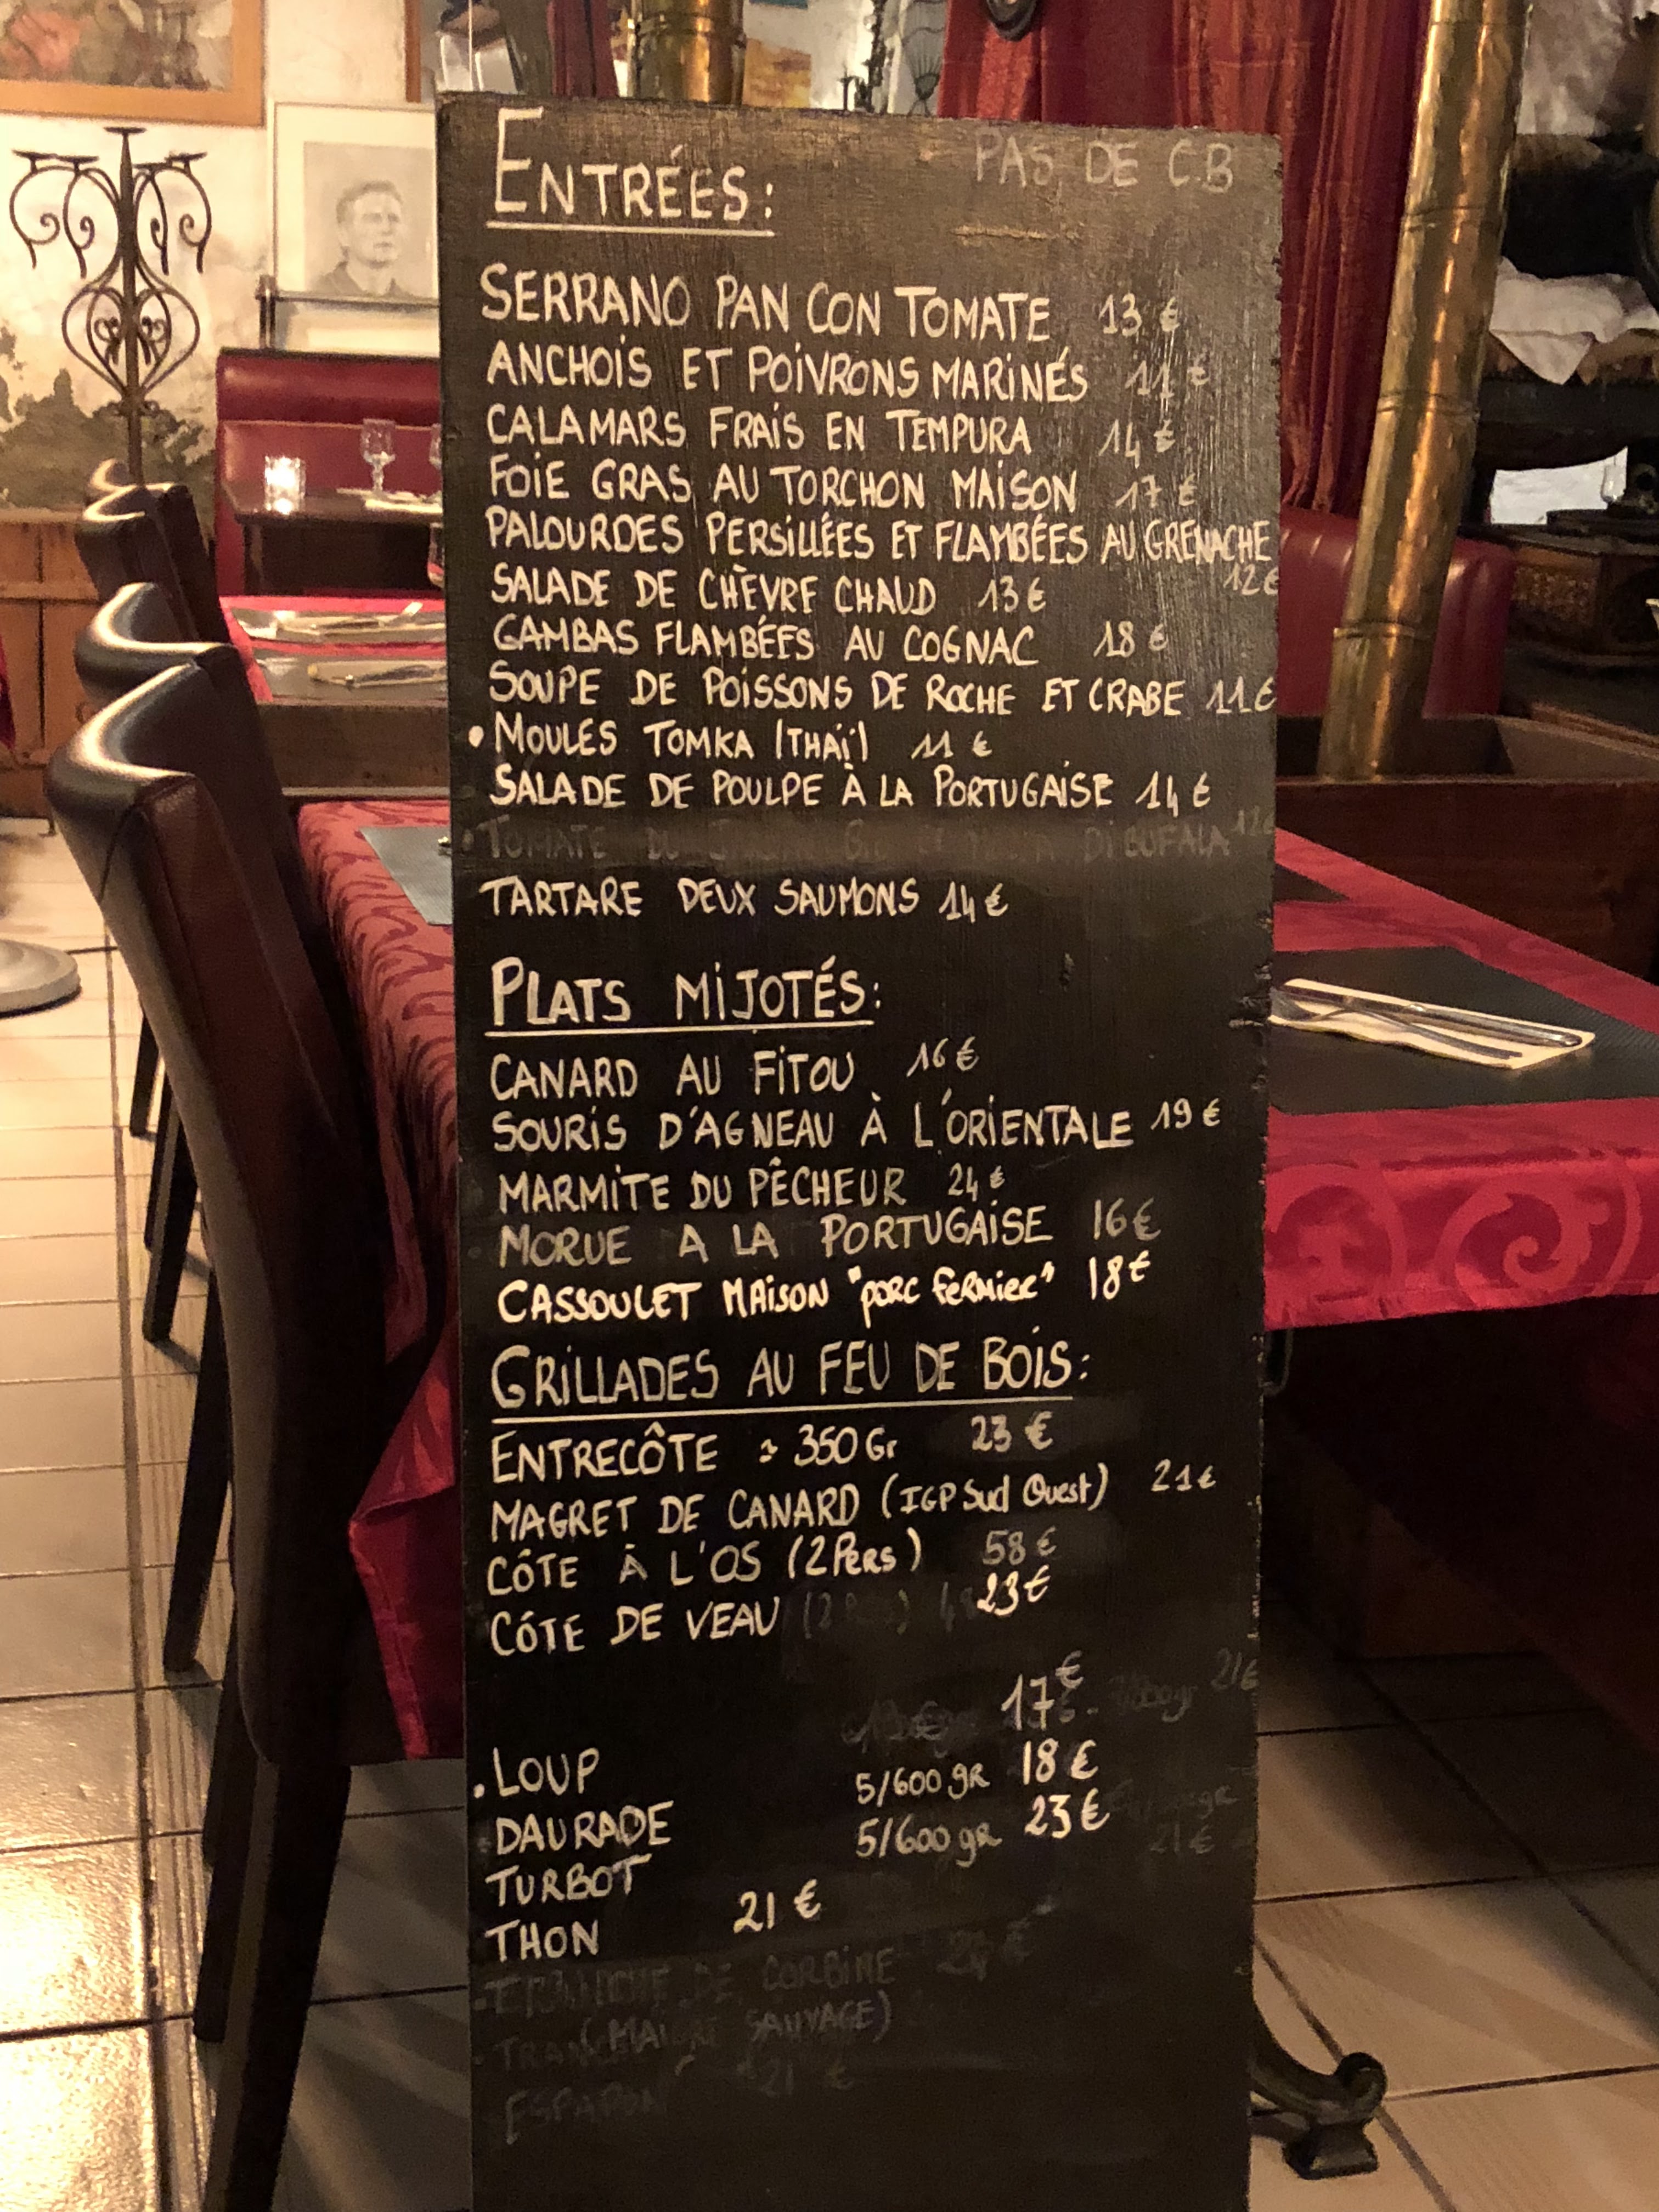 ENTRÉES:
PAS DE C.B
SERRANO PAN CON TOMATE 13 €
ANCHOIS ET POIVRONS MARINÉS 11 €
CALAMARS FRAIS EN TEMPURA 14 €
FOIE GRAS AU TORCHON MAISON 17 €
PALOURDES PERSILLÉES ET FLAMBÉES AU GRENACHE
12€
SALADE DE CHÈVRE CHAUD 13 €
GAMBAS FLAMBÉES AU COGNAC 18 €
SOUPE DE POISSONS DE ROCHE ET CRABE 11€
• MOULES TOMKA (THAÏ) 11 €
SALADE DE POULPE À LA PORTUGAISE 14 €
• TOMATE DU DI BUFALA 12€
TARTARE DEUX SAUMONS 14 €
PLATS MIJOTÉS:
CANARD AU FITOU 16 €
SOURIS D'AGNEAU À L'ORIENTALE 19 €
MARMITE DU PÊCHEUR 24 €
MORUE A LA PORTUGAISE 16 €
CASSOULET MAISON "PORC FERMIER" 18€
GRILLADES AU FEU DE BOIS:
ENTRECÔTE ≈ 350 Gr 23 €
MAGRET DE CANARD (IGP Sud Ouest) 21€
CÔTE À L'OS (2 PERS) 58 €
CÔTE DE VEAU 23€
17€
21€
. LOUP 5/600 gr 18 €
DAURADE 5/600 gr 23 €
21 €
TURBOT
THON 21 €
DE CORBINE
SAUVAGE)
21 €
ESPADON